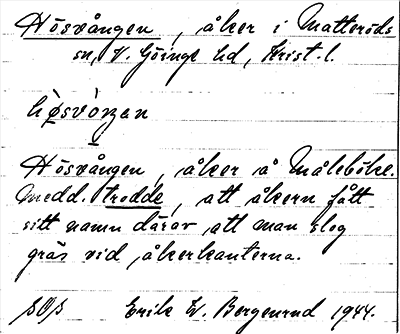 Hösvången, åker i Matteröds
sn, V. Göinge hd, Krist. l.
Hösvången, åker å Måleböke.
Medd. Strodde, att åkern fått
sitt namn därav, att man slog
gräs vid åkerkanterna.
Erik W. Bergenrud 1944.